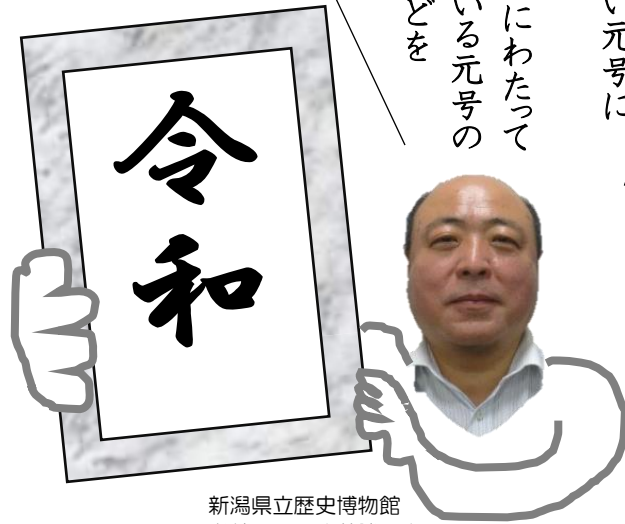 い元号に
にわたって
いる元号の
どを
令和
新潟県立歴史博物館